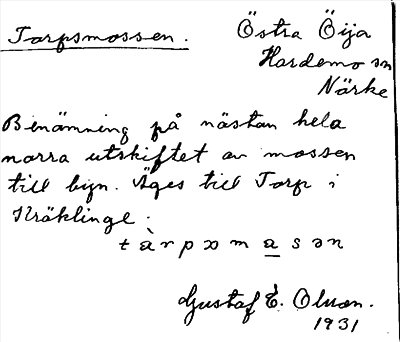 Torpsmossen.
Östra Öija
Hardemo sn
Närke
Benämning på nästan hela
norra utskiftet av mossen
till byn. Äges till Torp i
Kräklinge.
tàrpxmasən
Gustaf E. Olsson.
1931